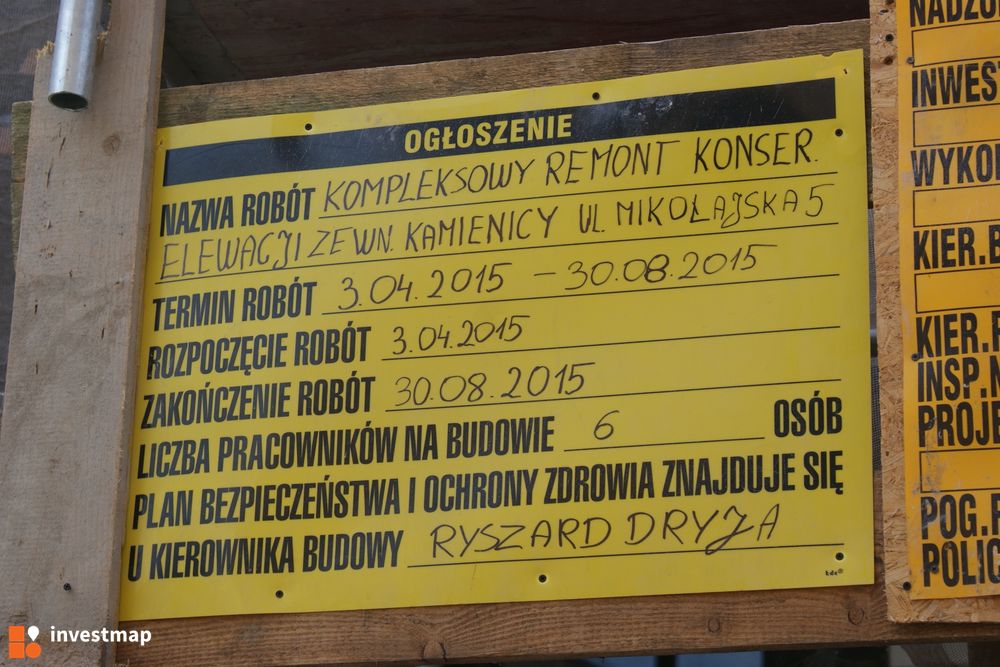 OGŁOSZENIE
NAZWA ROBÓT KOMPLEKSOWY REMONT KONSER.
ELEWACJI ZEWN. KAMIENICY UL. MIKOŁAJSKA 5
TERMIN ROBÓT 3.04.2015 - 30.08.2015
ROZPOCZĘCIE ROBÓT 3.04.2015
ZAKOŃCZENIE ROBÓT 30.08.2015
LICZBA PRACOWNIKÓW NA BUDOWIE 6 OSÓB
PLAN BEZPIECZEŃSTWA I OCHRONY ZDROWIA ZNAJDUJE SIĘ
U KIEROWNIKA BUDOWY RYSZARD DRYJA
NADZO
INWEST
WYKON
KIER.B
KIER.R
INSP.N
PROJE
POG.R
POLIC
investmap